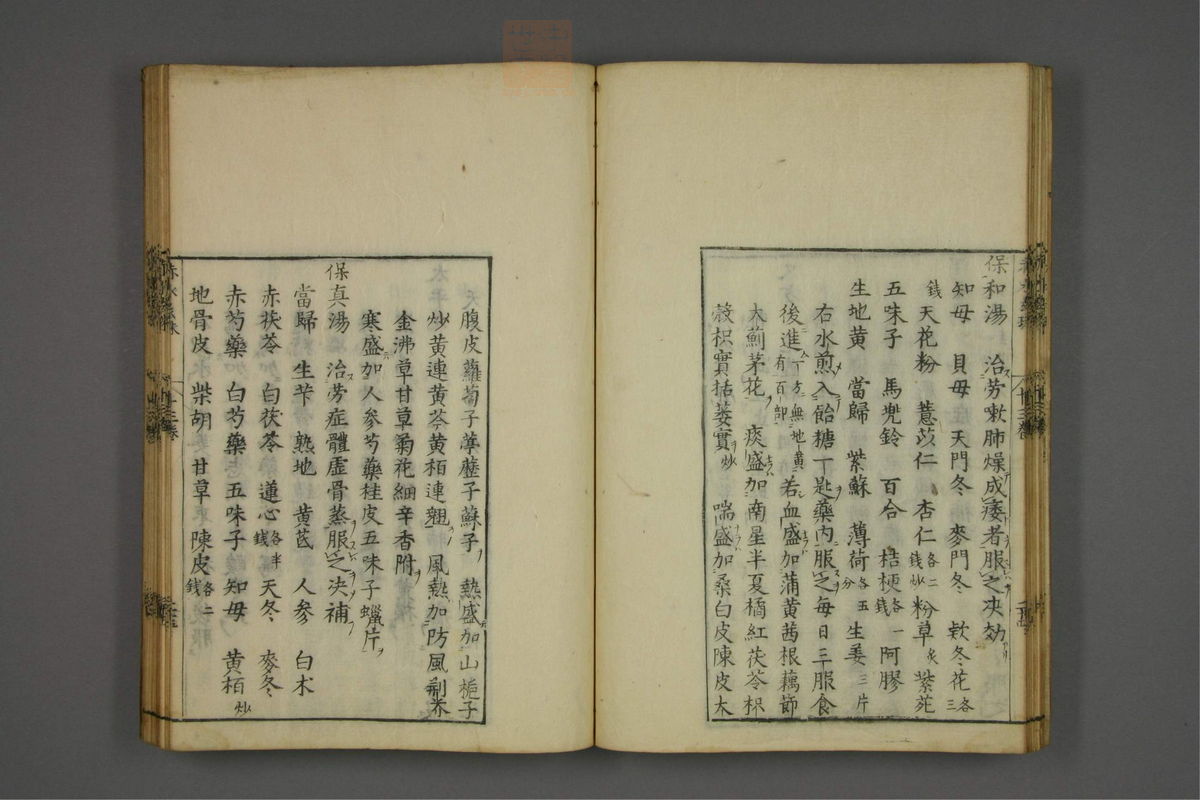 保和湯 治労嗽肺燥成痿者服之决効
知母 貝母 天門冬 麥門冬 欵冬花各三
錢天花粉 薏苡仁 杏仁各二錢炒粉草炙紫苑
五味子 馬兜鈴 百合 桔梗各一錢阿膠
生地黄 當歸 紫蘇 薄荷各五分生姜三片
右水煎入飴糖一匙藥内服之每日三服食
後進一方無地黄有百部若血盛加蒲黄茜根藕節
大薊茅花 痰盛加南星半夏橘紅茯苓枳
殼枳實括蔞實炒 喘盛加桑白皮陳皮大
腹皮蘿蔔子葶藶子蘇子 熱盛加山梔子
炒黄連黄芩黄栢連翹 風熱加防風荊芥
金沸草甘草菊花細辛香附
寒盛加人參芍藥桂皮五味子蠟片
保真湯 治労症體虚骨蒸服之决補
當歸 生苄 熟地 黄芪 人參 白术
赤茯苓 白茯苓 蓮心各半錢天冬 麥冬
赤芍藥 白芍藥 五味子 知母 黄栢炒
地骨皮 柴胡 甘草 陳皮各二錢